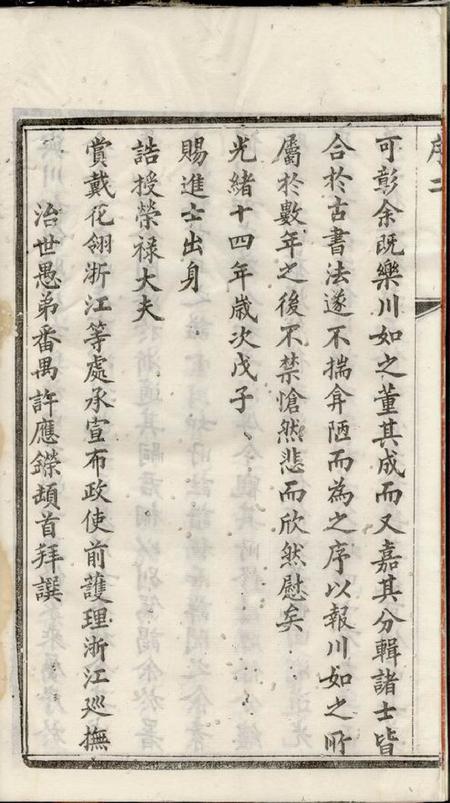 序二
可彰余既樂川如之董其成而又嘉其分輯諸士皆
合於古書法遂不揣弇陋而為之序以報川如之所
屬於數年之後不禁愴然悲而欣然慰矣
光緒十四年歲次戊子
賜進士出身
誥授榮祿大夫
賞戴花翎浙江等處承宣布政使前護理浙江巡撫
治世愚弟番禺許應鑅頓首拜譔